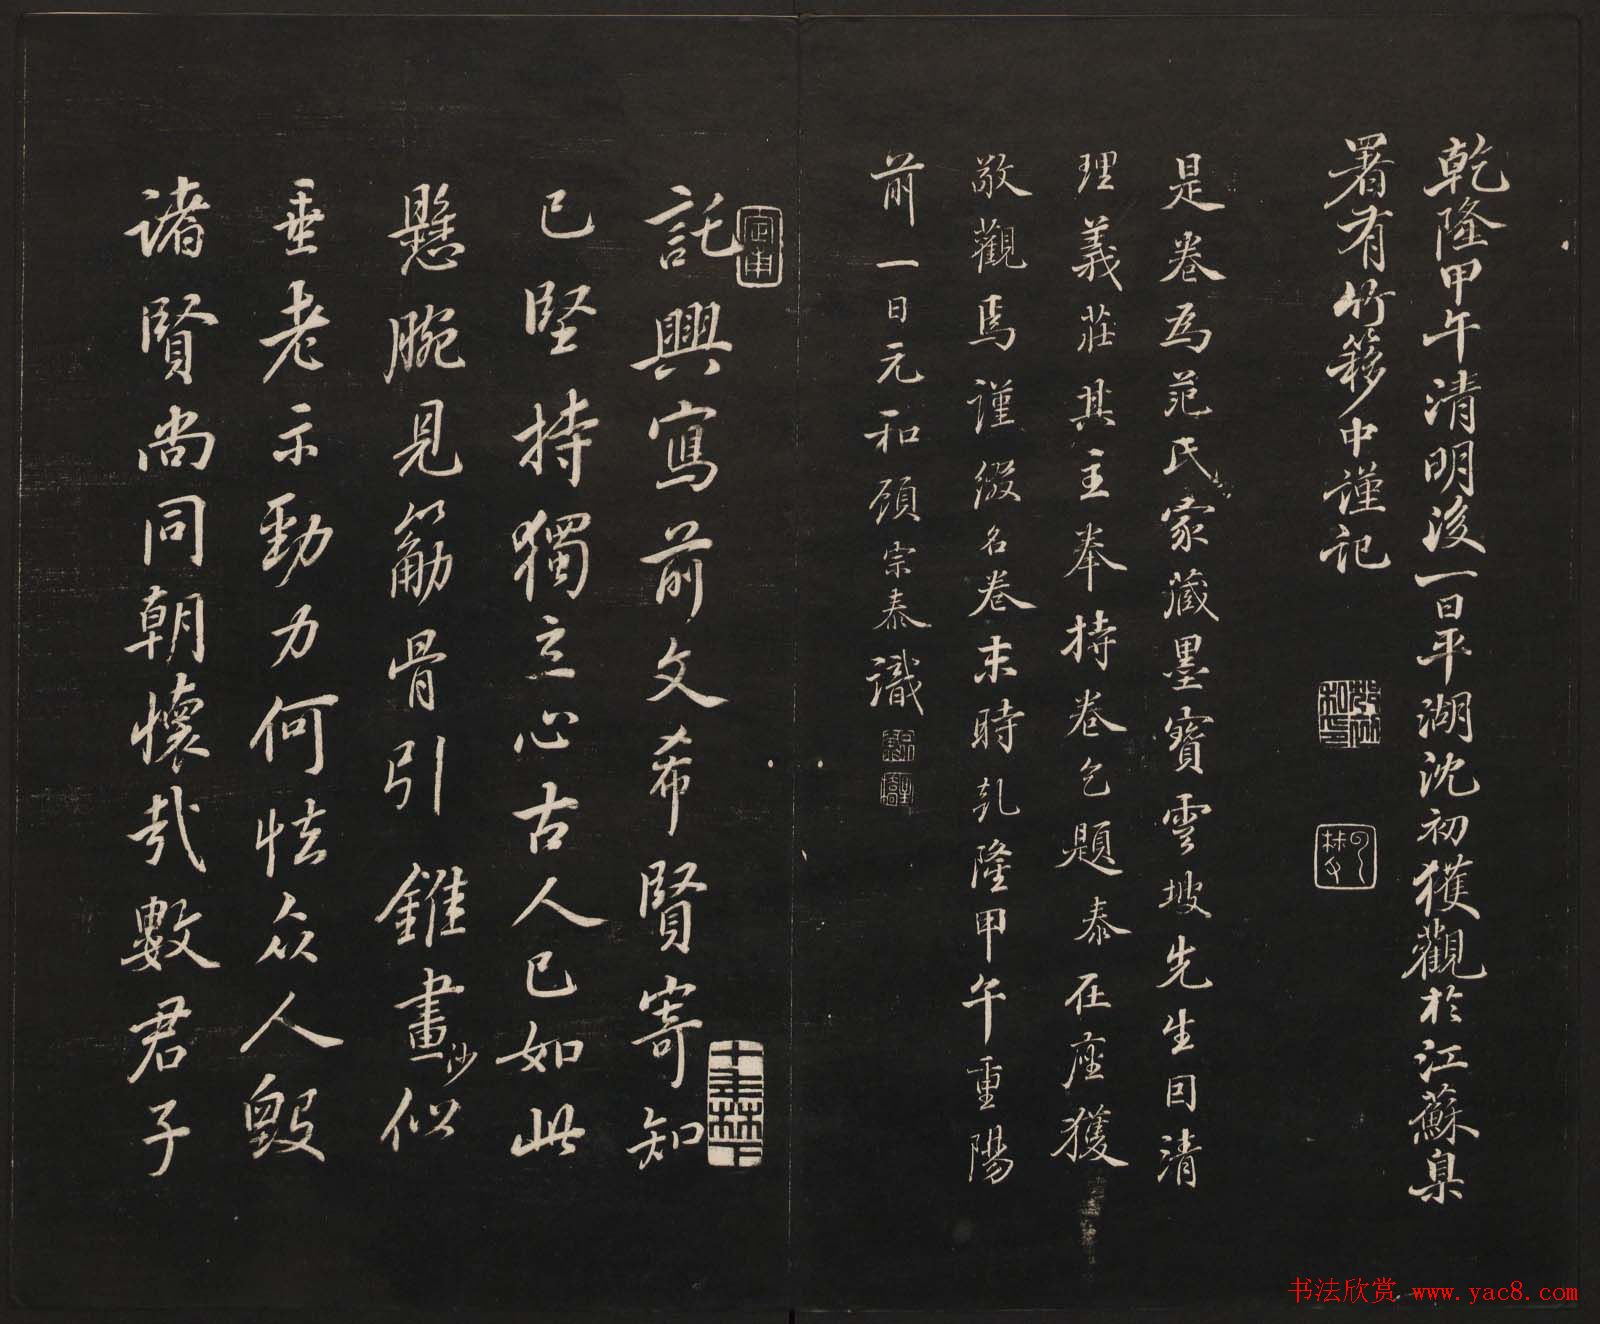 乾隆甲午清明後一日平湖沈初獲觀於江蘇臬
署有竹簃中謹記
是卷為范氏家藏墨寶雲坡先生因清
理義莊其主奉持卷乞題泰在座獲
敬觀焉謹綴名卷末時乹隆甲午重陽
前一日元和顧宗泰識
託興寫前文希賢寄知
己堅持獨立心古人已如此
懸腕見筋骨引錐畫沙似
垂老示勁力何怯众人毀
诸賢尚同朝懷哉數君子
书法欣赏 www.yac8.com